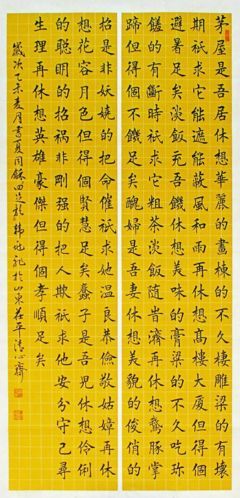 茅屋是吾居休想華麗的畫棟的不久棲雕梁的有壞
期祇求它能遮能蔽風和雨再休想高樓大廈但得個
避暑足矣淡飯充吾饑休想美味的膏粱的不久吃珍
饈的有斷時祇求它粗茶淡飯隨時濟再休想豚掌
蹄但得個不饑足矣醜婦是吾妻休想美貌的俊俏的
招是非妖嬈的把命催祇求她溫良恭儉敬姑嫜再休
想花容月色但得個賢慧足矣蠢子是吾兒休想伶俐
的聰明的招禍非剛强的把人欺祇求他安分守己尋
生理再休想英雄豪傑但得個孝順足矣
歲次乙未月書夏同龢於山東茌平清心齋